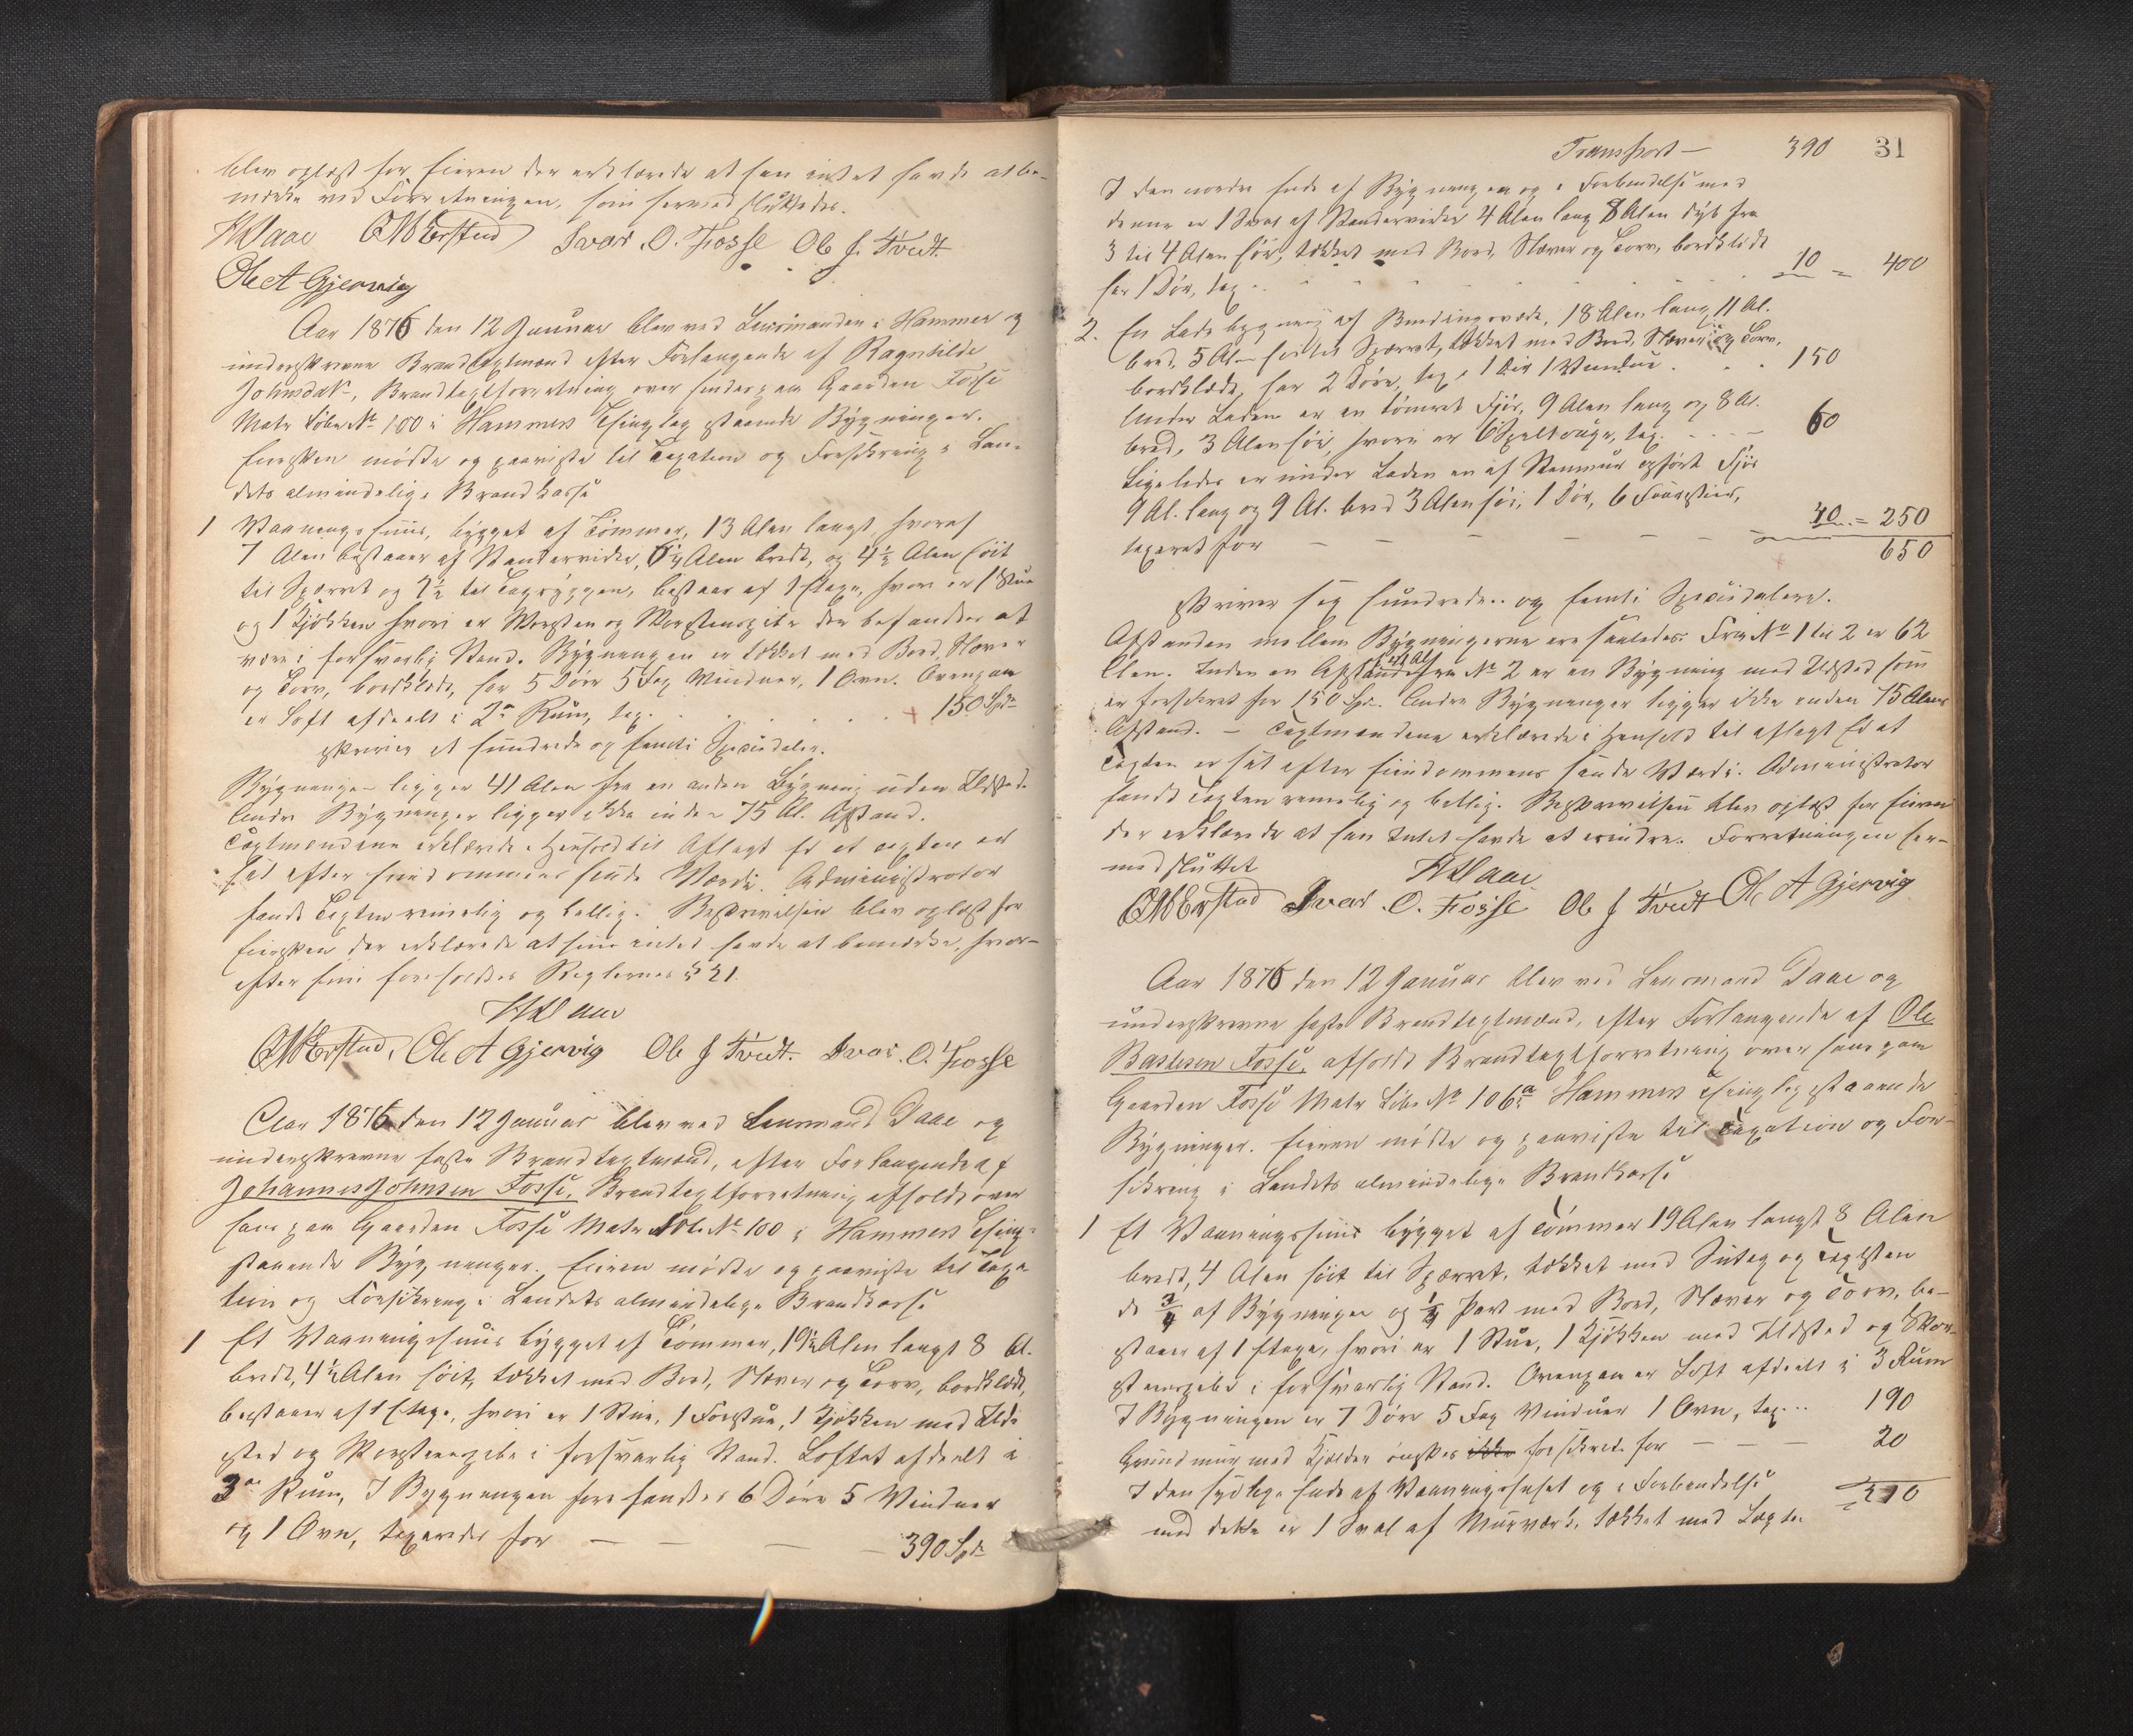 blev oplæst for Eieren der erklærede at han intet havde at be-
mærke ved Forretningen, som hermed sluttedes.
HDaae OMErstad Ivar O. Fosse Ole J. Tvedt
Ole A Gjervig
Aar 1876 den 12 Januar blev ved Lensmanden i Hammer og
underskrevne Brandtaxtmænd efter Forlangende af Ragnhilde
Johnsdatr, Brandtaxtforretning over hendes paa Gaarden Fosse
Matr Løbe No 100 i Hammers Thinglag staaende Bygninger.
Eiersken mødte og paaviste til Taxation og Forsikring i Lan-
dets almindelige Brandkasse
1 Vaaningshuus, bygget af Tømmer, 13 Alen langt, hvoraf
7 Alen bestaaer af Standervider, 6½ Alen bredt, og 4½ Alen høit
til Sparret og 7½ til Tagryggen, bestaar af 1 Etage, hvori er 1 Stue
og 1 Kjøkken hvori er Skorsten og Skorstenspibe der befandtes at
være i forsvarlig Stand. Bygningen er tækket med Bord, Næver
og Torv, bordklædt, har 5 Døre 5 Fag Vinduer, 1 Ovn. Ovenpaa
er Loft afdeelt i 2de Rum, tax. 150 Spd
skriver et hundrede og femti Speciedaler.
Bygningen ligger 41 Alen fra en anden Bygning uden Ildsted.
Andre Bygninger ligger ikke inden 75 Al. Afstand.
Taxtmændene erklærede i Henhold til Aflagt Ed at taxten er
sat efter Eiendommens sande Værdi. Administrator
fandt Taxten rimelig og billig. Beskrivelsen blev oplæst for
Eiersken der erklærede at hun intet havde at bemærke, hvor-
efter hun foreholdtes Reglernes § 21.
HDaae
OMErstad, Ole A Gjervig Ole J Tvedt. Ivar O. Fosse
Aar 1876 den 12 Januar blev ved Lensmand Daae og
underskrevne faste Brandtaxtmænd, efter Forlangende af
Johannes Johnsen Fosse, Brandtaxtforretning afholdt over
hans paa Gaarden Fosse Matr Løb No 100 i Hammers Thing-
staaende Bygninger. Eieren mødte og paaviste til Taxa-
tion og Forsikring i Landets almindelige Brandkasse
1 Et Vaaningshuus bygget af Tømmer, 19½ Alen langt 8 Al.
bredt, 4½ Alen høit, tækket med Bord, Næver og Torv, bordklædt,
bestaaer af 1 Etage, hvori er 1 Stue, 1 Forstue, 1 Kjøkken med Ild-
sted og Skorstenspibe i forsvarlig Stand. Loftet afdeelt i
3de Rum, I Bygningen forefandtes 6 Døre 5 Vinduer
og 1 Ovn, taxeredes for 390 Spd
Transport — 390 31
I den nordre Ende af Bygningen og i Forbindelse med
denne er 1 Sval af Standervider 4 Alen lang 8 Alen dyb fra
3 til 4 Alen høi, tækket med Bord, Næver og Torv, bordklædt
har 1 Dør, tax .. 10 = 400
2. En Ladebygning af Bindingsværk, 18 Alen lang 11 Al.
bred, 5 Alen høi til Sparret, tækket med Bord, Næver og Torv,
bordklædt, har 2 Døre, tax. 150
Under Laden er en tømret Fjøs, 9 Alen lang og 8 Al.
bred, 3 Alen høi, hvori er 6 tax. 60
Ligeledes er under Laden en af Steenmur opført Fjøs
9 Al. lang og 9 Al. bred 3 Alen høi, 1 Dør, 6
taxeret for 40 = 250
650
skriver sex hundrede og femti Speciedaler.
Afstanden mellem Bygningerne ere saaledes: Fra No 1 til 2 er 62
Alen. Inden en Afstand fra No 2 er en Bygning med Ildsted som
er forsikret for 150 Spd. Andre Bygninger ligger ikke inden 75 Alens
Afstand. — Taxtmændene erklærede i Henhold til aflagt Ed at
Taxten er sat efter Eiendommens sande Værdi. Administrator
fandt Taxten rimelig og billig. Beskrivelsen blev oplæst for Eieren
der erklærede at han Intet havde at erindre. Forretningen her-
med sluttet
HDaae
OMErstad Ivar O. Fosse Ole J Tvedt Ole A Gjervig
Aar 1876 den 12 Januar blev ved Lensmand Daae og
underskrevne faste Brandtaxtmænd, efter Forlangende af Ole
Bastesen Fosse, afholdt Brandtaxtforretning over hans paa
Gaarden Fosse Matr Løbe No 106a i Hammers Thinglag staaende
Bygninger. Eieren mødte og paaviste til Taxation og For-
sikring i Landets almindelige Brandkasse
1 Et Vaaningshuus bygget af Tømmer 19 Alen langt 8 Alen
bredt, 4 Alen høit til Sparret, tækket med Sutag og Taglsten
de 3/4 af Bygningen og 1/4 Part med Bord, Næver og Torv, be-
staaer af 1 Etage, hvori er 1 Stue, 1 Kjøkken med Ildsted og Skor-
stenspibe i forsvarlig Stand. Ovenpaa er Loft afdeelt i 3 Rum
I Bygningen er 7 Døre 5 Fag Vinduer 1 Ovn, tax... 190
Grundmur med Kjælder ønskes ikke forsikrede for — 20
I den sydlige Ende af Vaaningshuset og i Forbindelse 210
med dette er 1 Sval af Murværk, tækket med Lægter